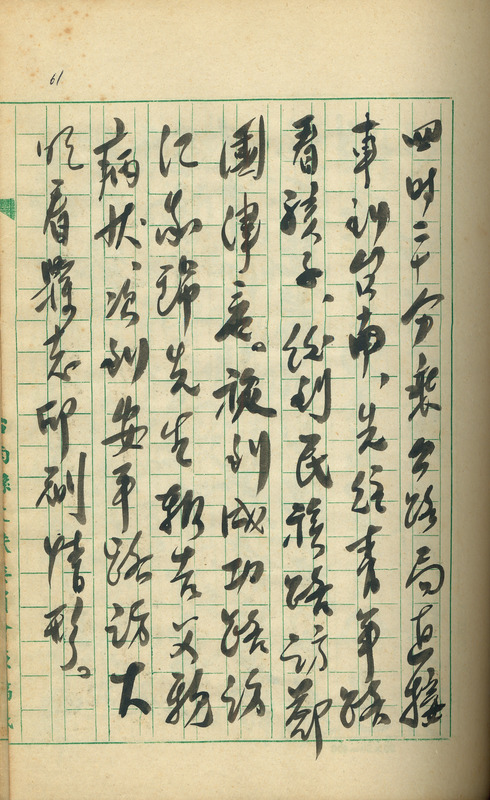 61
四时二十分乘公路局直接
車到台南、先往青年路
看孩子、後到民族路訪鄭
國津君。旋到成功路訪
江家錦先生報告父親
病状、次到安平路訪大
明看縣志印刷情形。